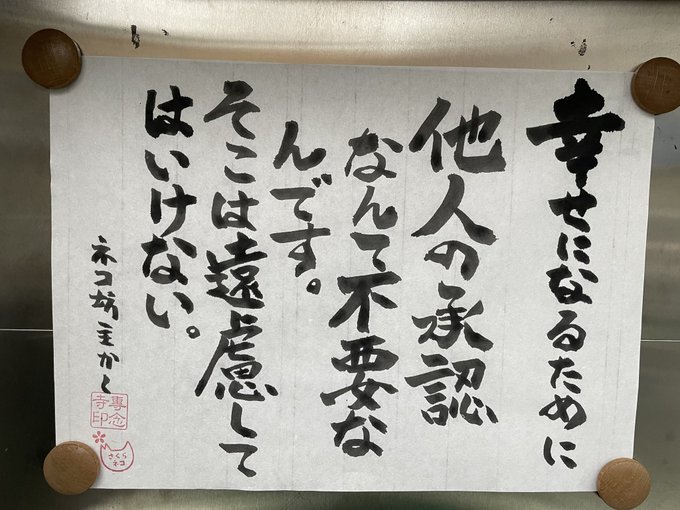 幸せになるために
他人の承認
なんて不要な
んです。
そこは遠慮して
はいけない。
ネコ坊主かく
専念
寺印
さくら
ネコ